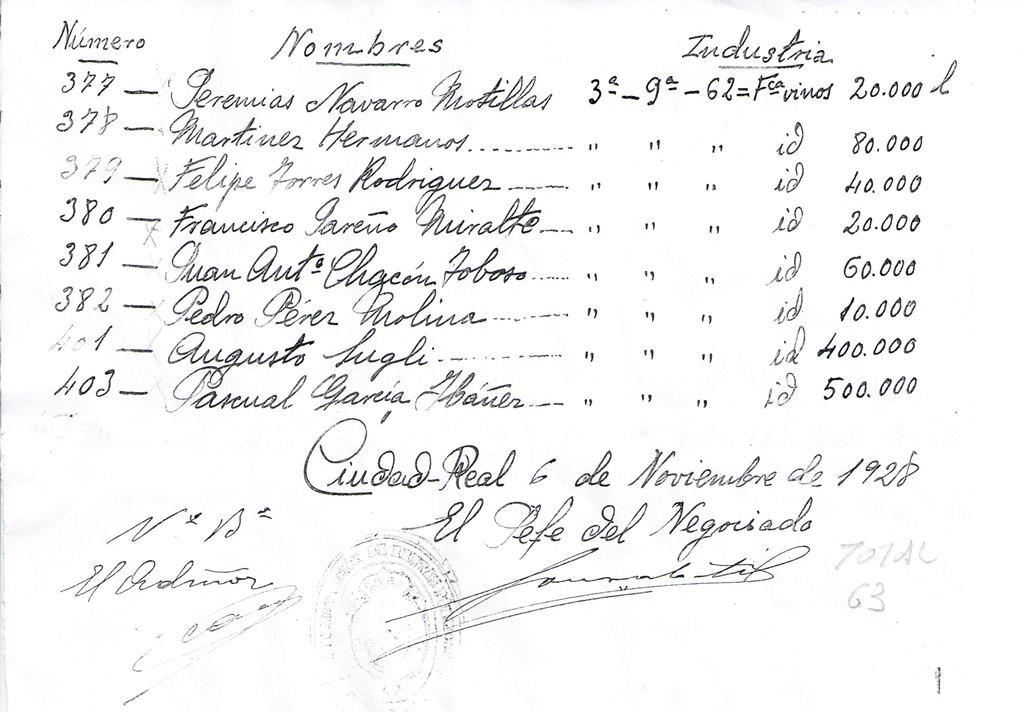 Número Nombres Industria
377 — Jeremias Navarro Motillas 3ª - 9ª - 62 = Fca vinos 20.000 l
378 — Martinez Hermanos ........ " " " id 80.000
379 — Felipe Torres Rodriguez ------ " " " id 40.000
380 — Francisco Pareño Miralte --- " " " id 20.000
381 — Juan Antº Chacón Toboso ----- " " " id 60.000
382 — Pedro Pérez Molina -------- " " " id 10.000
401 — Augusto Lugli ---------- " " " id 400.000
403 — Pascual García Ibáñez --- " " " id 500.000
Ciudad-Real 6 de Noviembre de 1928
Nº Bº El Jefe del Negociado
El Admor
TOTAL
63